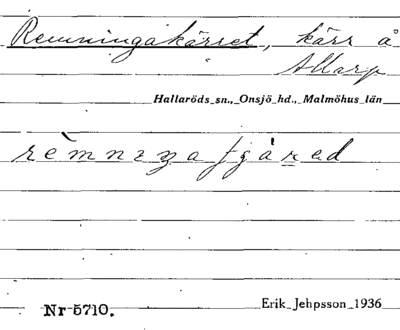 Remningakärret, kärr å
Allarp
Hallaröds sn., Onsjö hd., Malmöhus län
Nr 5710.
Erik Jehpsson 1936